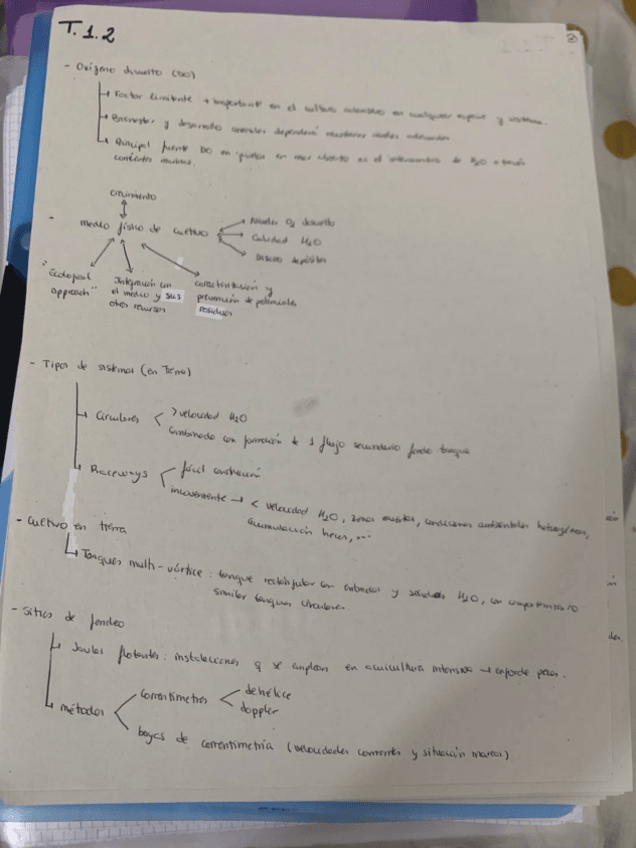 T.1.2
②
- Oxígeno disuelto (DO)
↳ Factor limitante + importante en el cultivo intensivo en cualquier especie y sistema.
↳ Bienestar y desarrollo animales dependerá mantener niveles adecuados
↳ Principal fuente DO en peces en mar abierto es el intercambio de H2O a través
corrientes marinas.
crecimiento
- medio físico de cultivo
Niveles O2 disuelto
Calidad H2O
Diseño depósitos
"Ecological approach"
Integración con el medio y sus otros recursos
caracterización y prevención de potenciales residuos
- Tipos de sistemas (en Tierra)
↳ Circulares < >velocidad H2O
combinado con formación de 1 flujo secundario fondo tanque
↳ Raceways < fácil construcción
inconveniente → < velocidad H2O, zonas muertas, condiciones ambientales heterogéneas,
acumulación heces, ...
- Cultivo en tierra
↳ Tanques multi-vórtice: tanque rectangular con entradas y salidas H2O, con comportamiento
similar tanques circulares.
- Sitios de fondeo
↳ Jaulas flotantes: instalaciones q se emplean en acuicultura intensiva → engorde peces.
↳ métodos < correntímetros < de hélice
doppler
boyas de correntimetría (velocidades corrientes y situación mareas)